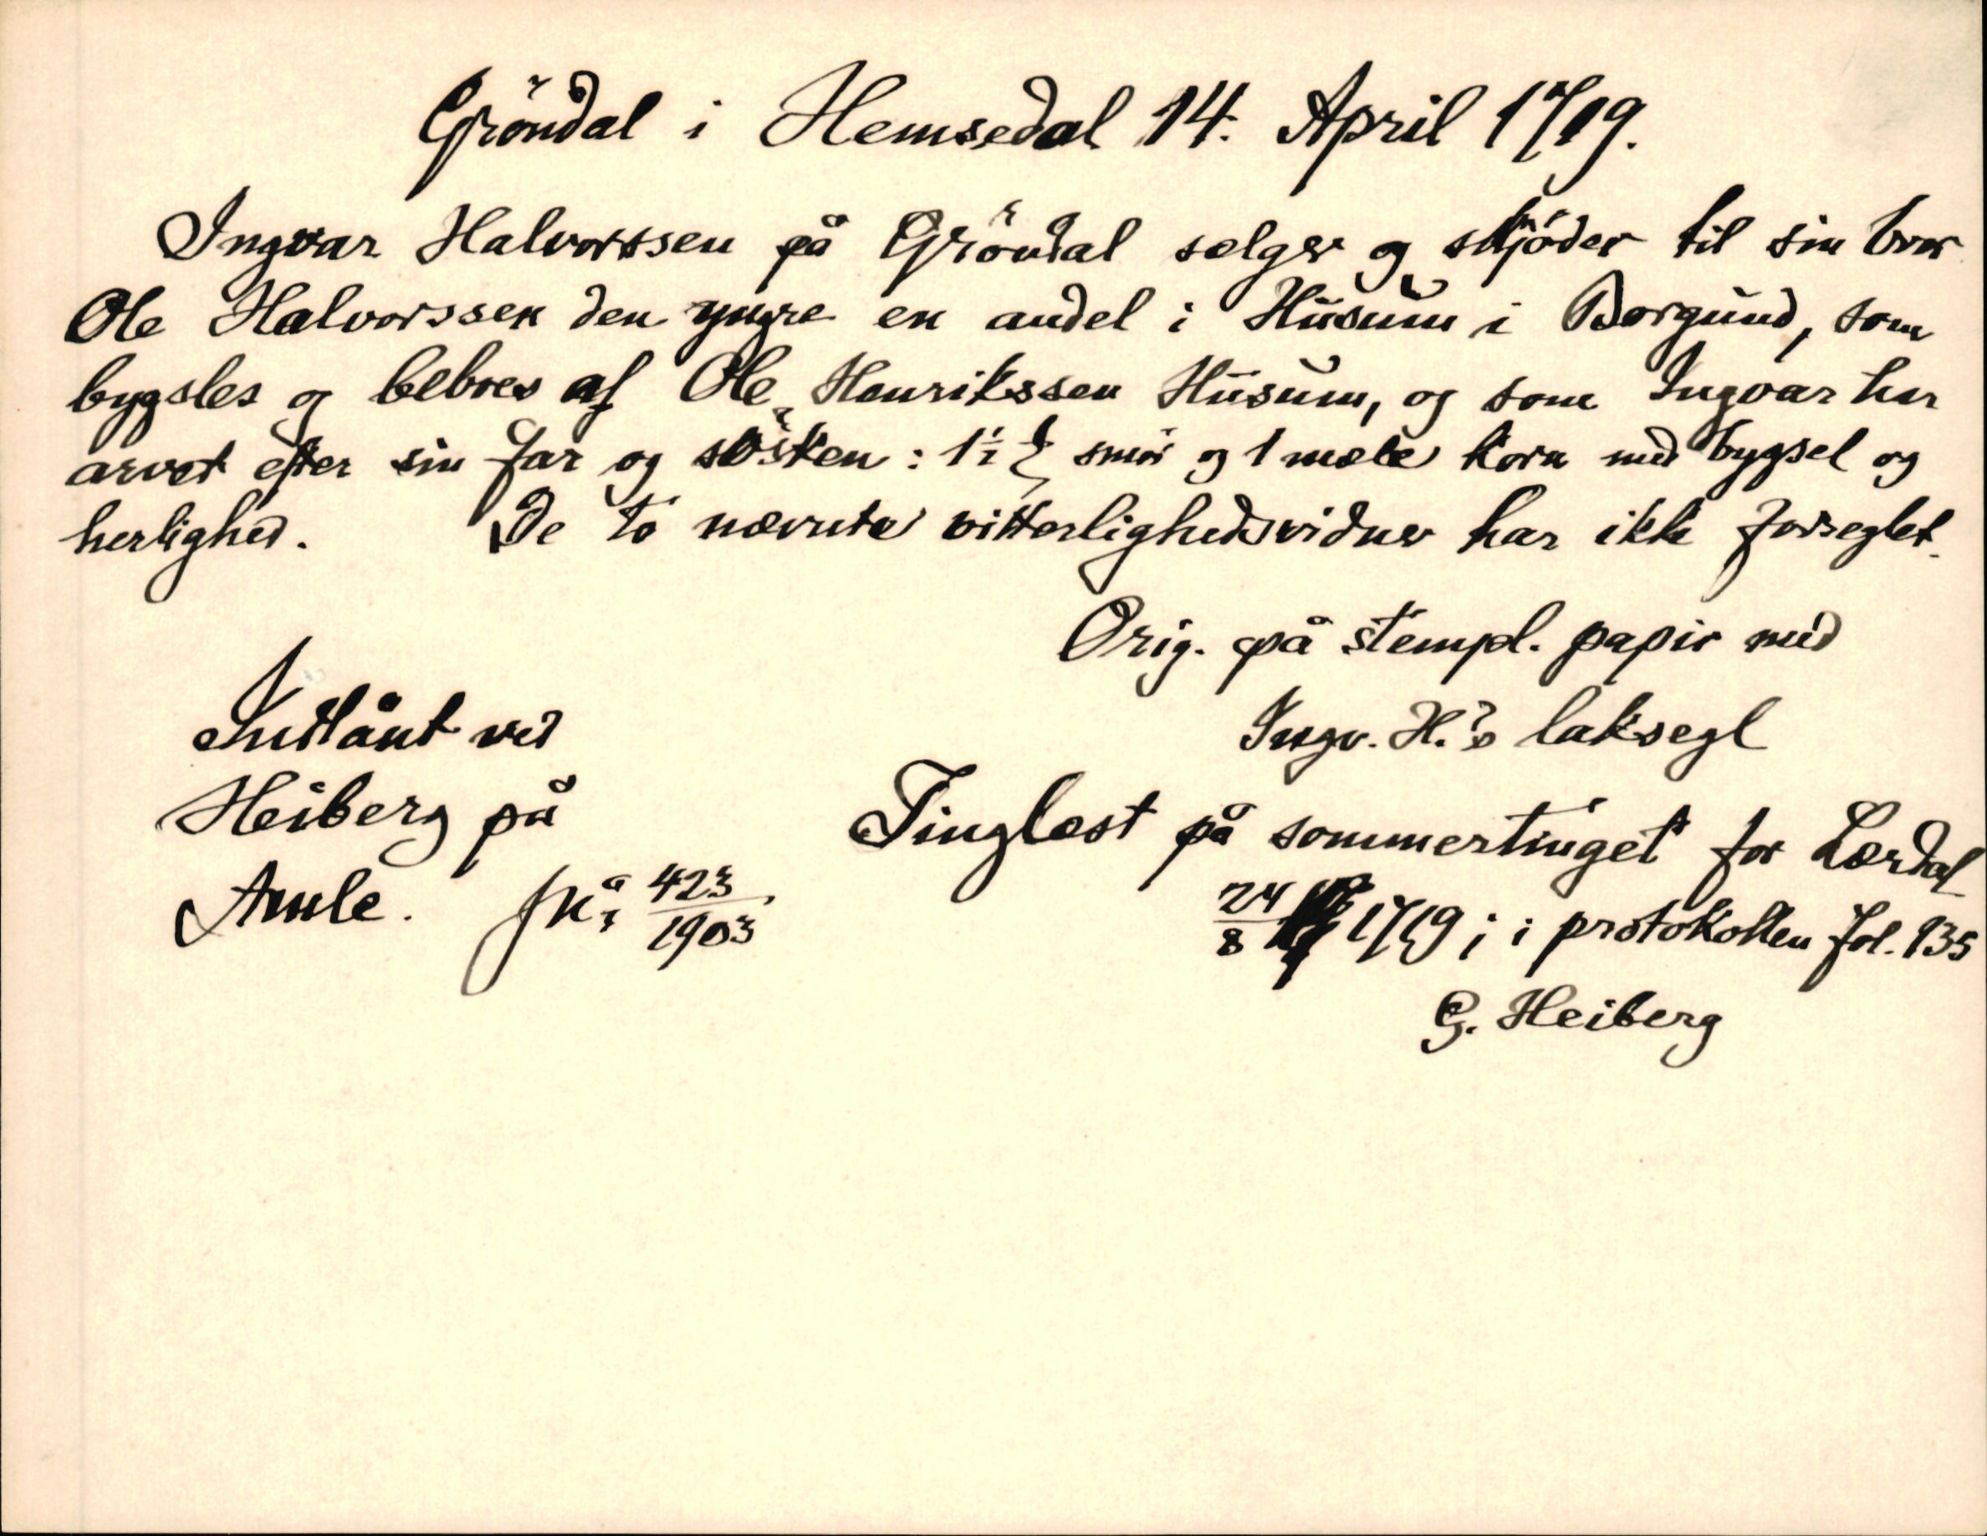 Gröndal i Hemsedal 14. April 1719.
Ingvar Halvorssen på Gröndal selger og skjöder til sin bror
Ole Halvorssen den yngre en andel i Husum i Borgund, som
bygsles og beboes af Ole Henrikssen Husum, og som Ingvar har
arvet efter sin far og sösken: 1½ smör og 1 mæle korn med bygsel og
herlighed. De to nævnte vitterlighedsvidner har ikke forseglet.
Orig. på stempl. papir med
Ingv. H.'s laksegl
Indlånt ved
Heiberg på
Amle. fra 423/1903.
Tinglæst på sommertinget for Lærdal
24/8 1719; i protokollen fol. 135
G. Heiberg